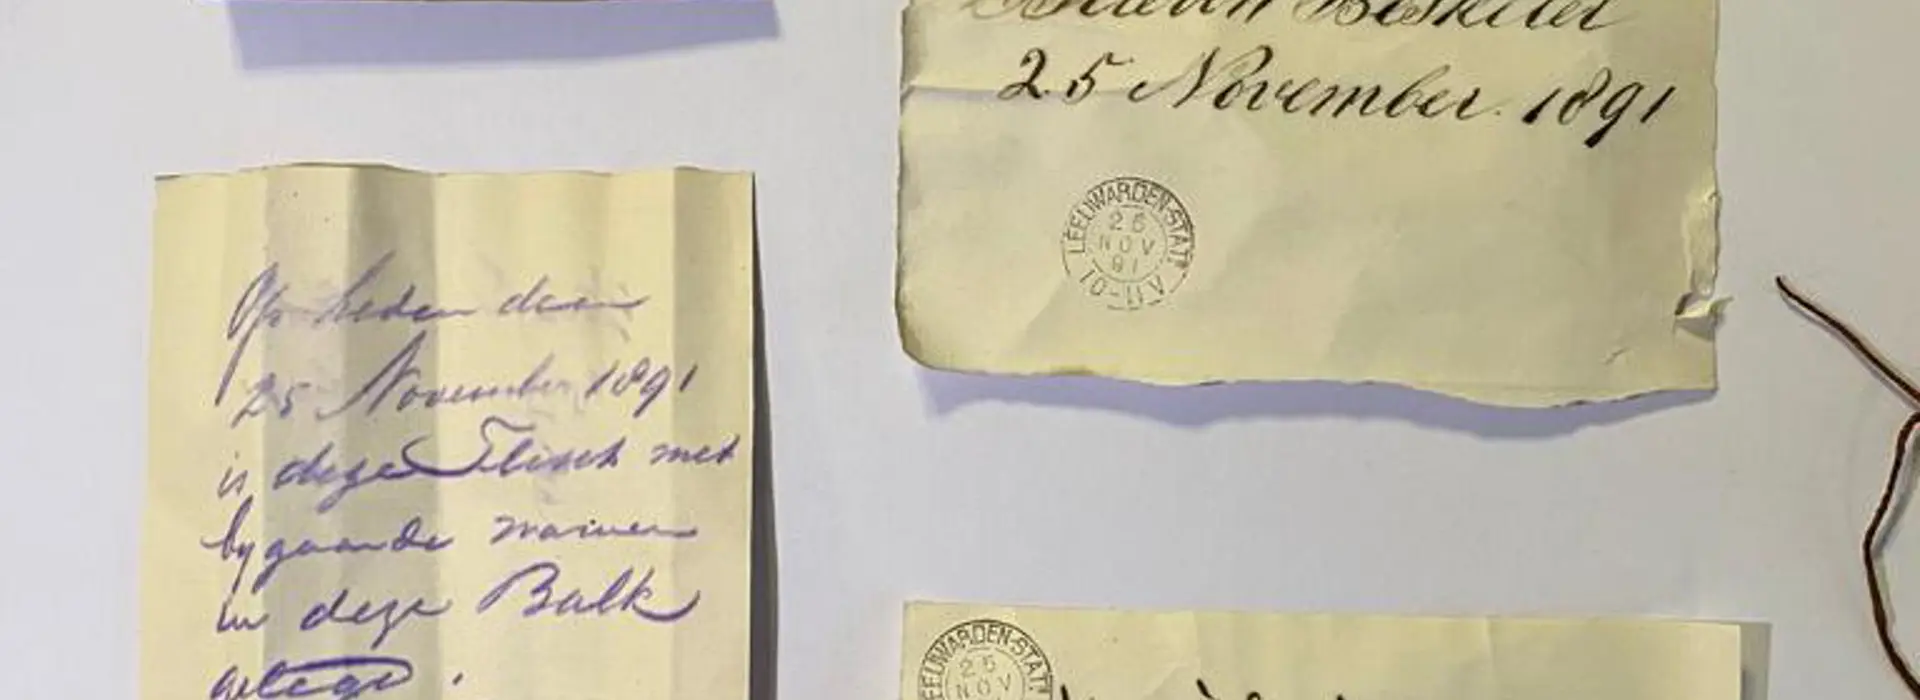 25 November. 1891
LEEUWARDEN-STATn
25
NOV
91
10-11V
Op heden den
25 November 1891
is deze Flesch met
bygaande namen
in deze Balk
gelegd.
LEEUWARDEN-STATn
25
NOV